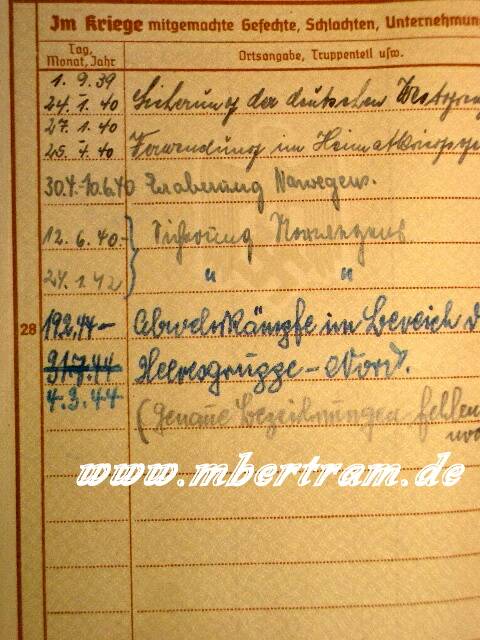 Im Kriege mitgemachte Gefechte, Schlachten, Unternehmun
Tag, Monat, Jahr
Ortsangabe, Truppenteil usw.
1.9.39
24.1.40 Sicherung der deutschen Westgren
27.1.40
25.4.40 Verwendung im Heimatkriegsge
30.4.-10.6.40 Eroberung Norwegens.
12.6.40- Sicherung Norwegens
24.1.42 " "
28
19.2.44- Abwehrkämpfe im Bereich d
31.7.44 Heeresgruppe-Nord.
4.3.44
(Genaue Bezeichnungen fehlen
www.mbertram.de